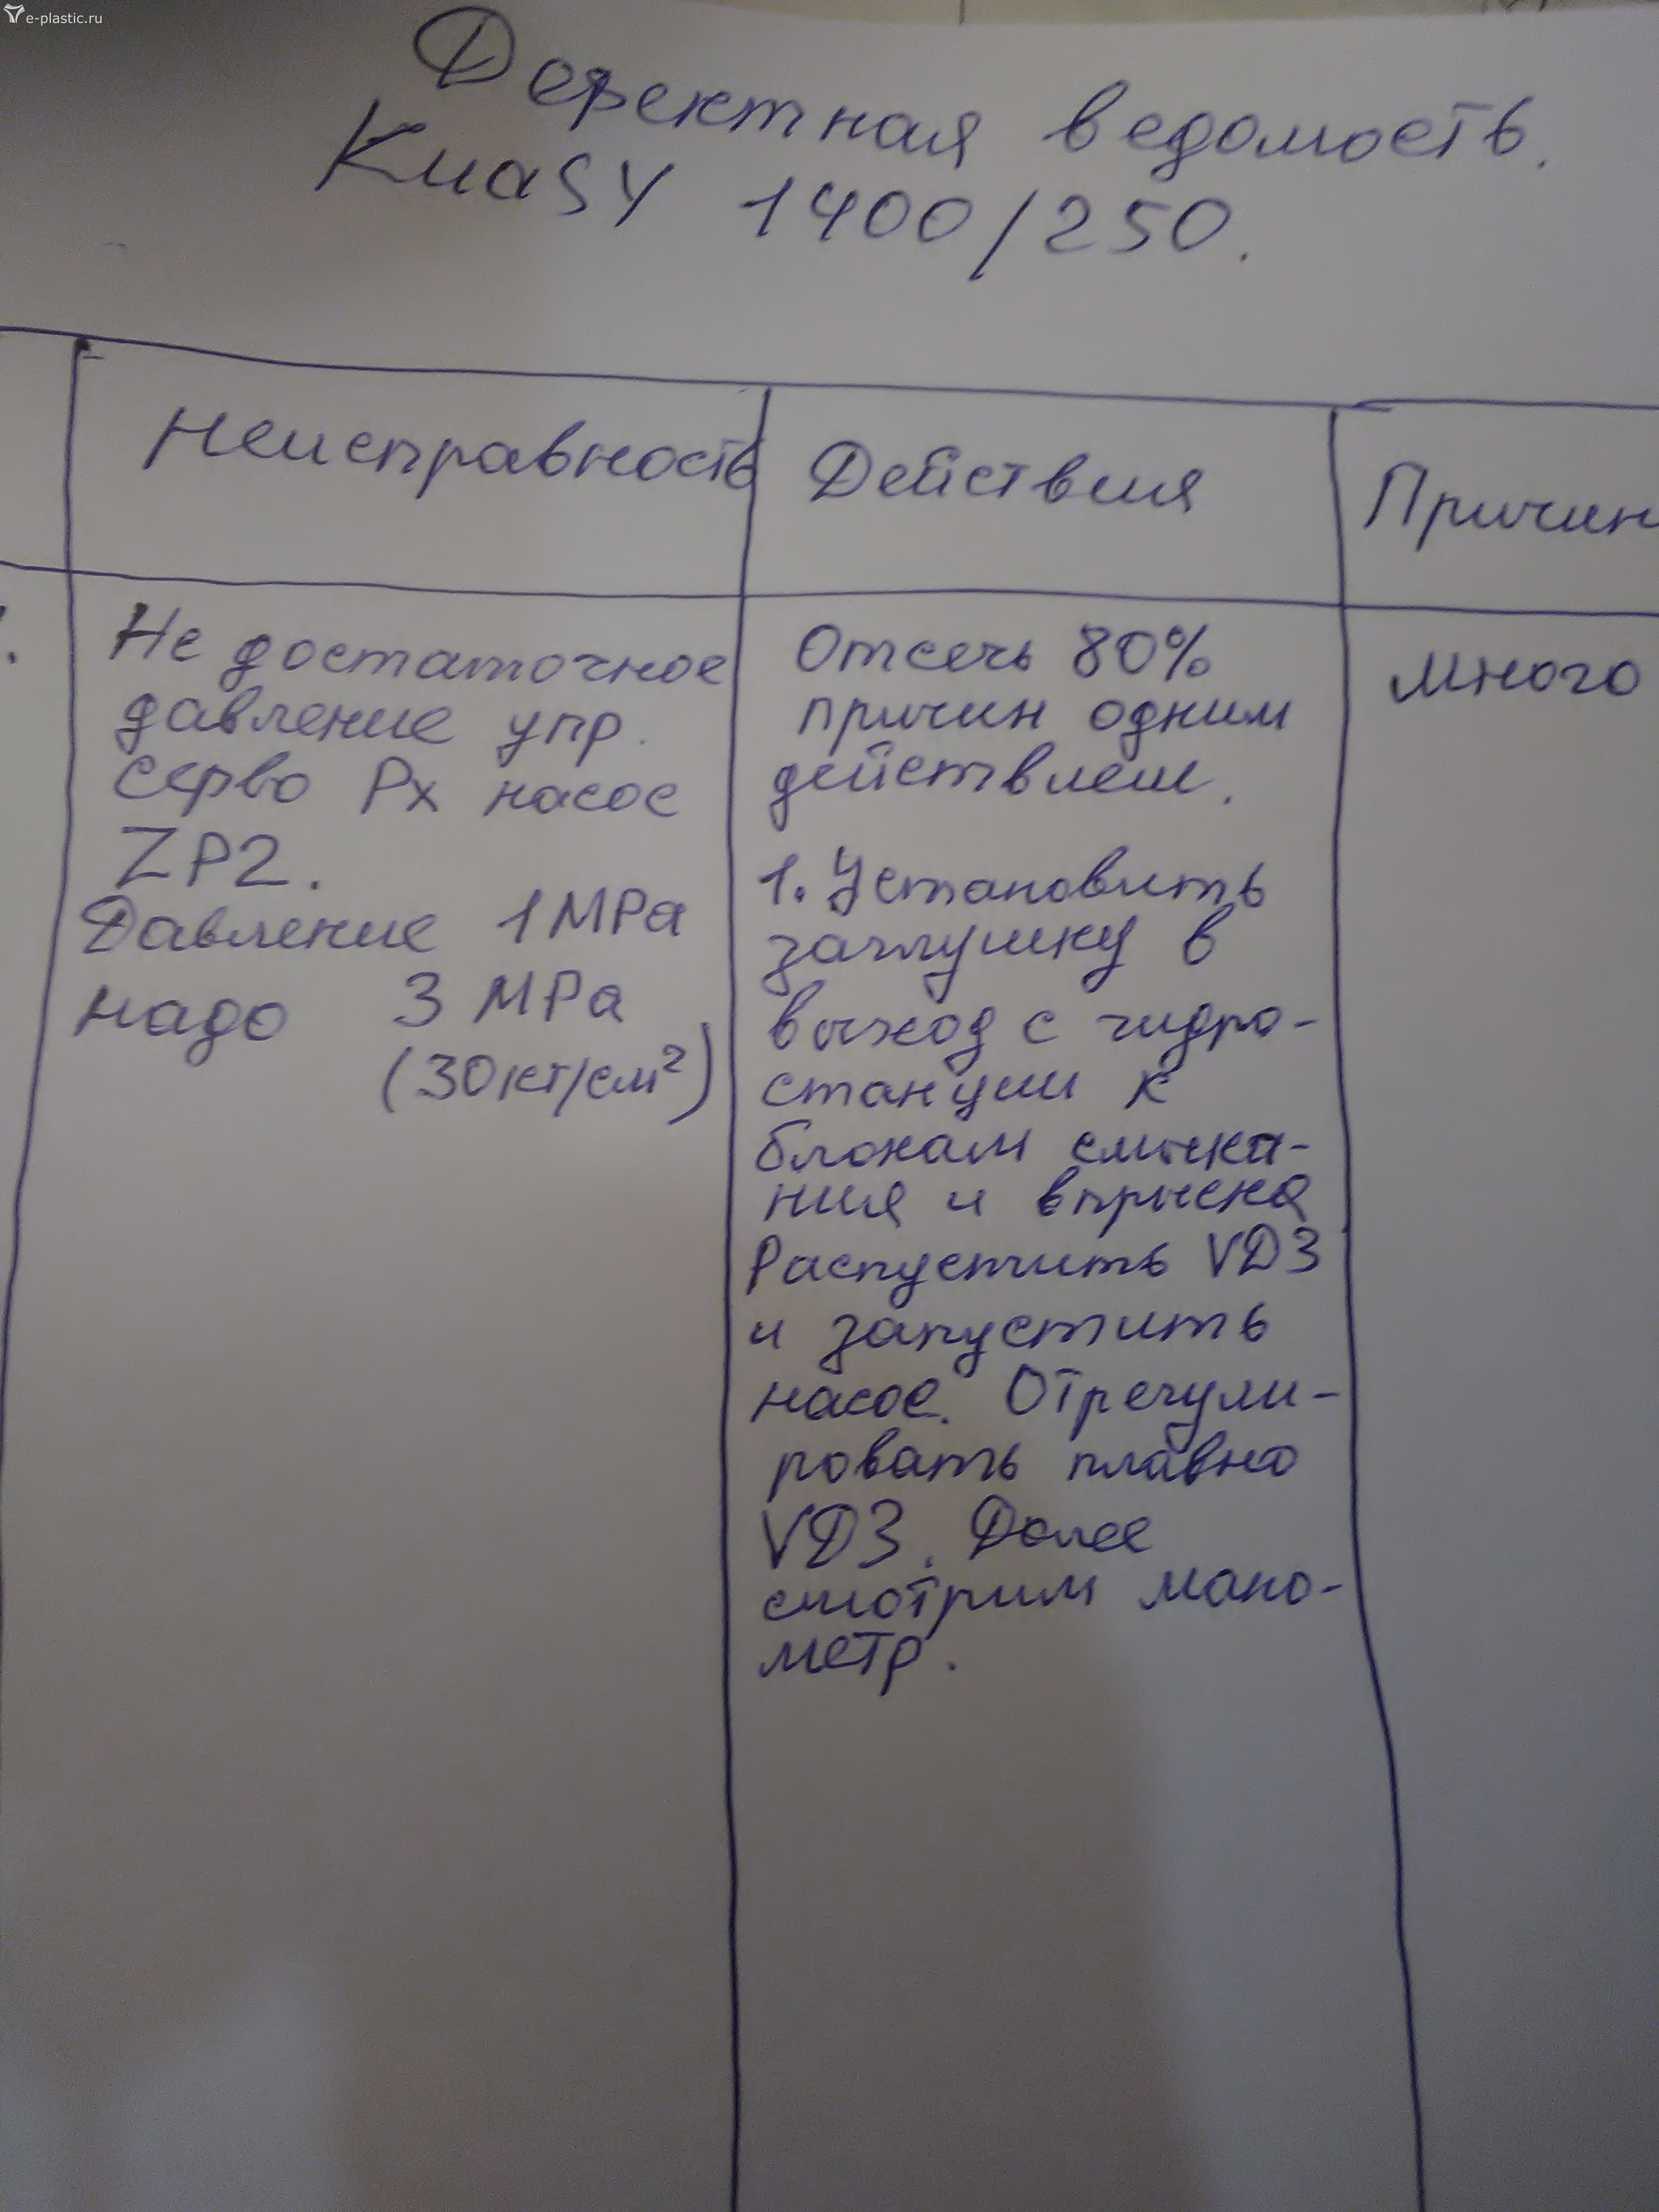 e-plastic.ru
Дефектная ведомость.
KuaSY 1400/250.
Неисправность
Действия
Причин
1.
Не достаточное
давление упр.
серво Рх насос
ZP2.
Давление 1MPa
надо 3 MPa
(30кг/см²)
Отсечь 80%
причин одним
действием.
1. Установить
заглушку в
выход с гидро-
станции к
блокам смыка-
ния и впрыска
Распустить VD3
и запустить
насос. Отрегули-
ровать плавно
VD3. Далее
смотрим мано-
метр.
много